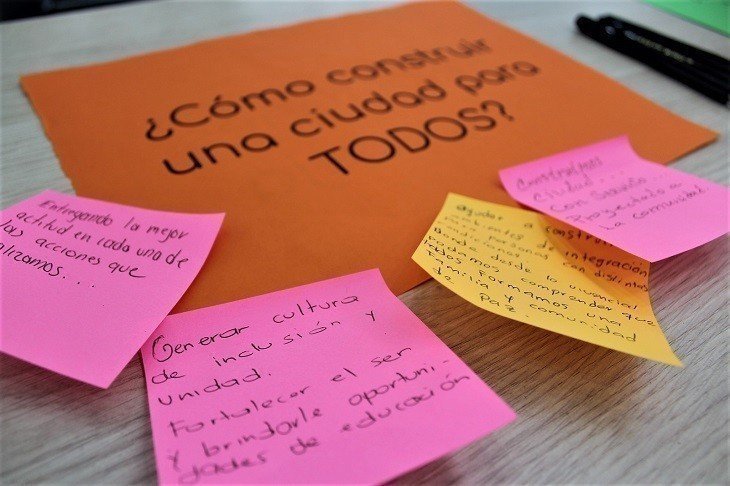 ¿Cómo construir
una ciudad para
TODOS?
Entregando la mejor
actitud en cada una de
las acciones que
alizamos....
Generar cultura
de inclusión y
unidad.
Fortalecer el ser
y brindarle oportuni-
dades de educación
ayudar a
ambientes de integración
personas con
donde desde
Todos formamos una
familia y comunidad
de paz.
Ciudad....
con
Proyectado a
la comunidad.